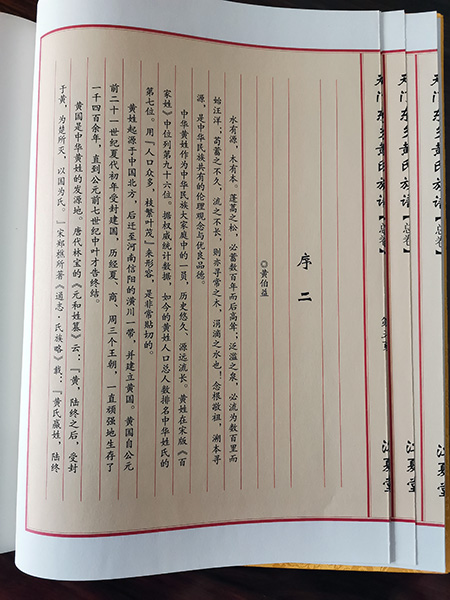 天门东乡黄氏族谱【总卷】
江夏堂
天门东乡黄氏族谱【总卷】
江夏堂
天门东乡黄氏族谱【总卷】
江夏堂
序 二
◎黄伯益
水有源，木有本。蓬蒿之松，必蓄数百年而后高耸；泛滥之泉，必流为数百里而
始汪洋；苟蓄之不久，流之不长，则亦寻常之木，涓滴之水也！念根敬祖，溯本寻
源，是中华民族共有的伦理观念与优良品德。
中华黄姓作为中华民族大家庭中的一员，历史悠久、源远流长。黄姓在宋版《百
家姓》中位列第九十六位。据权威统计数据，如今的黄姓人口总人数排名中华姓氏的
第七位。用『人口众多，枝繁叶茂』来形容，是非常贴切的。
黄姓起源于中国北方，后迁至河南信阳的潢川一带，并建立黄国。黄国自公元
前二十一世纪夏代初年受封建国，历经夏、商、周三个王朝，一直顽强地生存了
一千四百余年，直到公元前七世纪中叶才告终结。
黄国是中华黄姓的发源地。唐代林宝的《元和姓纂》云：『黄，陆终之后，受封
于黄，为楚所灭，以国为氏。』宋郑樵所著《通志·氏族略》载：『黄氏嬴姓，陆终